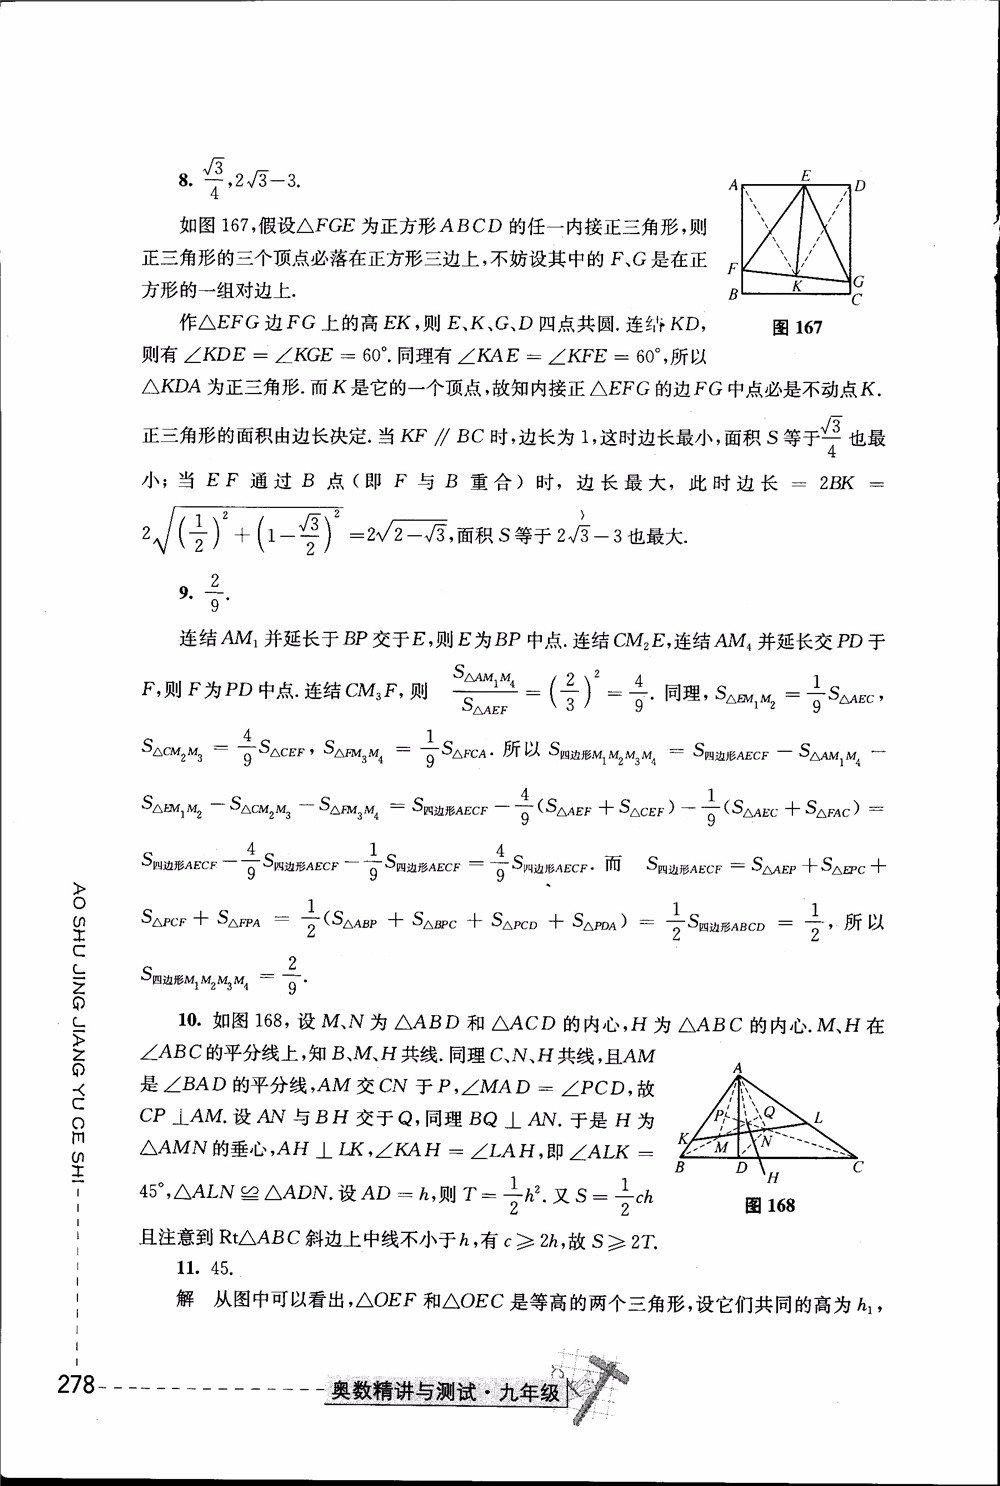 8. √3/4, 2√3－3.
如图 167,假设△FGE 为正方形 ABCD 的任一内接正三角形,则
正三角形的三个顶点必落在正方形三边上,不妨设其中的 F、G 是在正
方形的一组对边上.
作△EFG 边 FG 上的高 EK,则 E、K、G、D 四点共圆. 连结 KD,
则有 ∠KDE = ∠KGE = 60°. 同理有 ∠KAE = ∠KFE = 60°,所以
△KDA 为正三角形. 而 K 是它的一个顶点,故知内接正 △EFG 的边 FG 中点必是不动点 K.
正三角形的面积由边长决定. 当 KF ∥ BC 时,边长为 1,这时边长最小,面积 S 等于 √3/4 也最
小; 当 EF 通过 B 点 (即 F 与 B 重合) 时, 边长最大, 此时边长 = 2BK =
2√((1/2)² + (1－√3/2)²) = 2√(2－√3),面积 S 等于 2√3－3 也最大.
A E D
F
K
G
B C
图 167
9. 2/9.
连结 AM₁ 并延长于 BP 交于 E,则 E 为 BP 中点. 连结 CM₂E,连结 AM₄ 并延长交 PD 于
F,则 F 为 PD 中点. 连结 CM₃F, 则 S△AM₁M₄/S△AEF = (2/3)² = 4/9. 同理, S△EM₁M₂ = 1/9 S△AEC,
S△CM₂M₃ = 4/9 S△CEF, S△FM₃M₄ = 1/9 S△FCA. 所以 S四边形M₁M₂M₃M₄ = S四边形AECF － S△AM₁M₄ －
S△EM₁M₂ － S△CM₂M₃ － S△FM₃M₄ = S四边形AECF － 4/9 (S△AEF + S△CEF) － 1/9 (S△AEC + S△FAC) =
S四边形AECF － 4/9 S四边形AECF － 1/9 S四边形AECF = 4/9 S四边形AECF. 而 S四边形AECF = S△AEP + S△EPC +
S△PCF + S△FPA = 1/2 (S△ABP + S△BPC + S△PCD + S△PDA) = 1/2 S四边形ABCD = 1/2, 所以
S四边形M₁M₂M₃M₄ = 2/9.
10. 如图 168, 设 M、N 为 △ABD 和 △ACD 的内心,H 为 △ABC 的内心. M、H 在
∠ABC 的平分线上,知 B、M、H 共线. 同理 C、N、H 共线,且 AM
是 ∠BAD 的平分线,AM 交 CN 于 P,∠MAD = ∠PCD,故
CP ⊥ AM. 设 AN 与 BH 交于 Q,同理 BQ ⊥ AN. 于是 H 为
△AMN 的垂心,AH ⊥ LK,∠KAH = ∠LAH,即 ∠ALK =
45°,△ALN ≌ △ADN. 设 AD = h,则 T = 1/2 h². 又 S = 1/2 ch
且注意到 Rt△ABC 斜边上中线不小于 h,有 c ≥ 2h,故 S ≥ 2T.
A
P Q
L
K
M N
B D H C
图 168
11. 45.
解 从图中可以看出,△OEF 和△OEC 是等高的两个三角形,设它们共同的高为 h₁,
AO SHU JING JIANG YU CE SHI
278
奥数精讲与测试·九年级